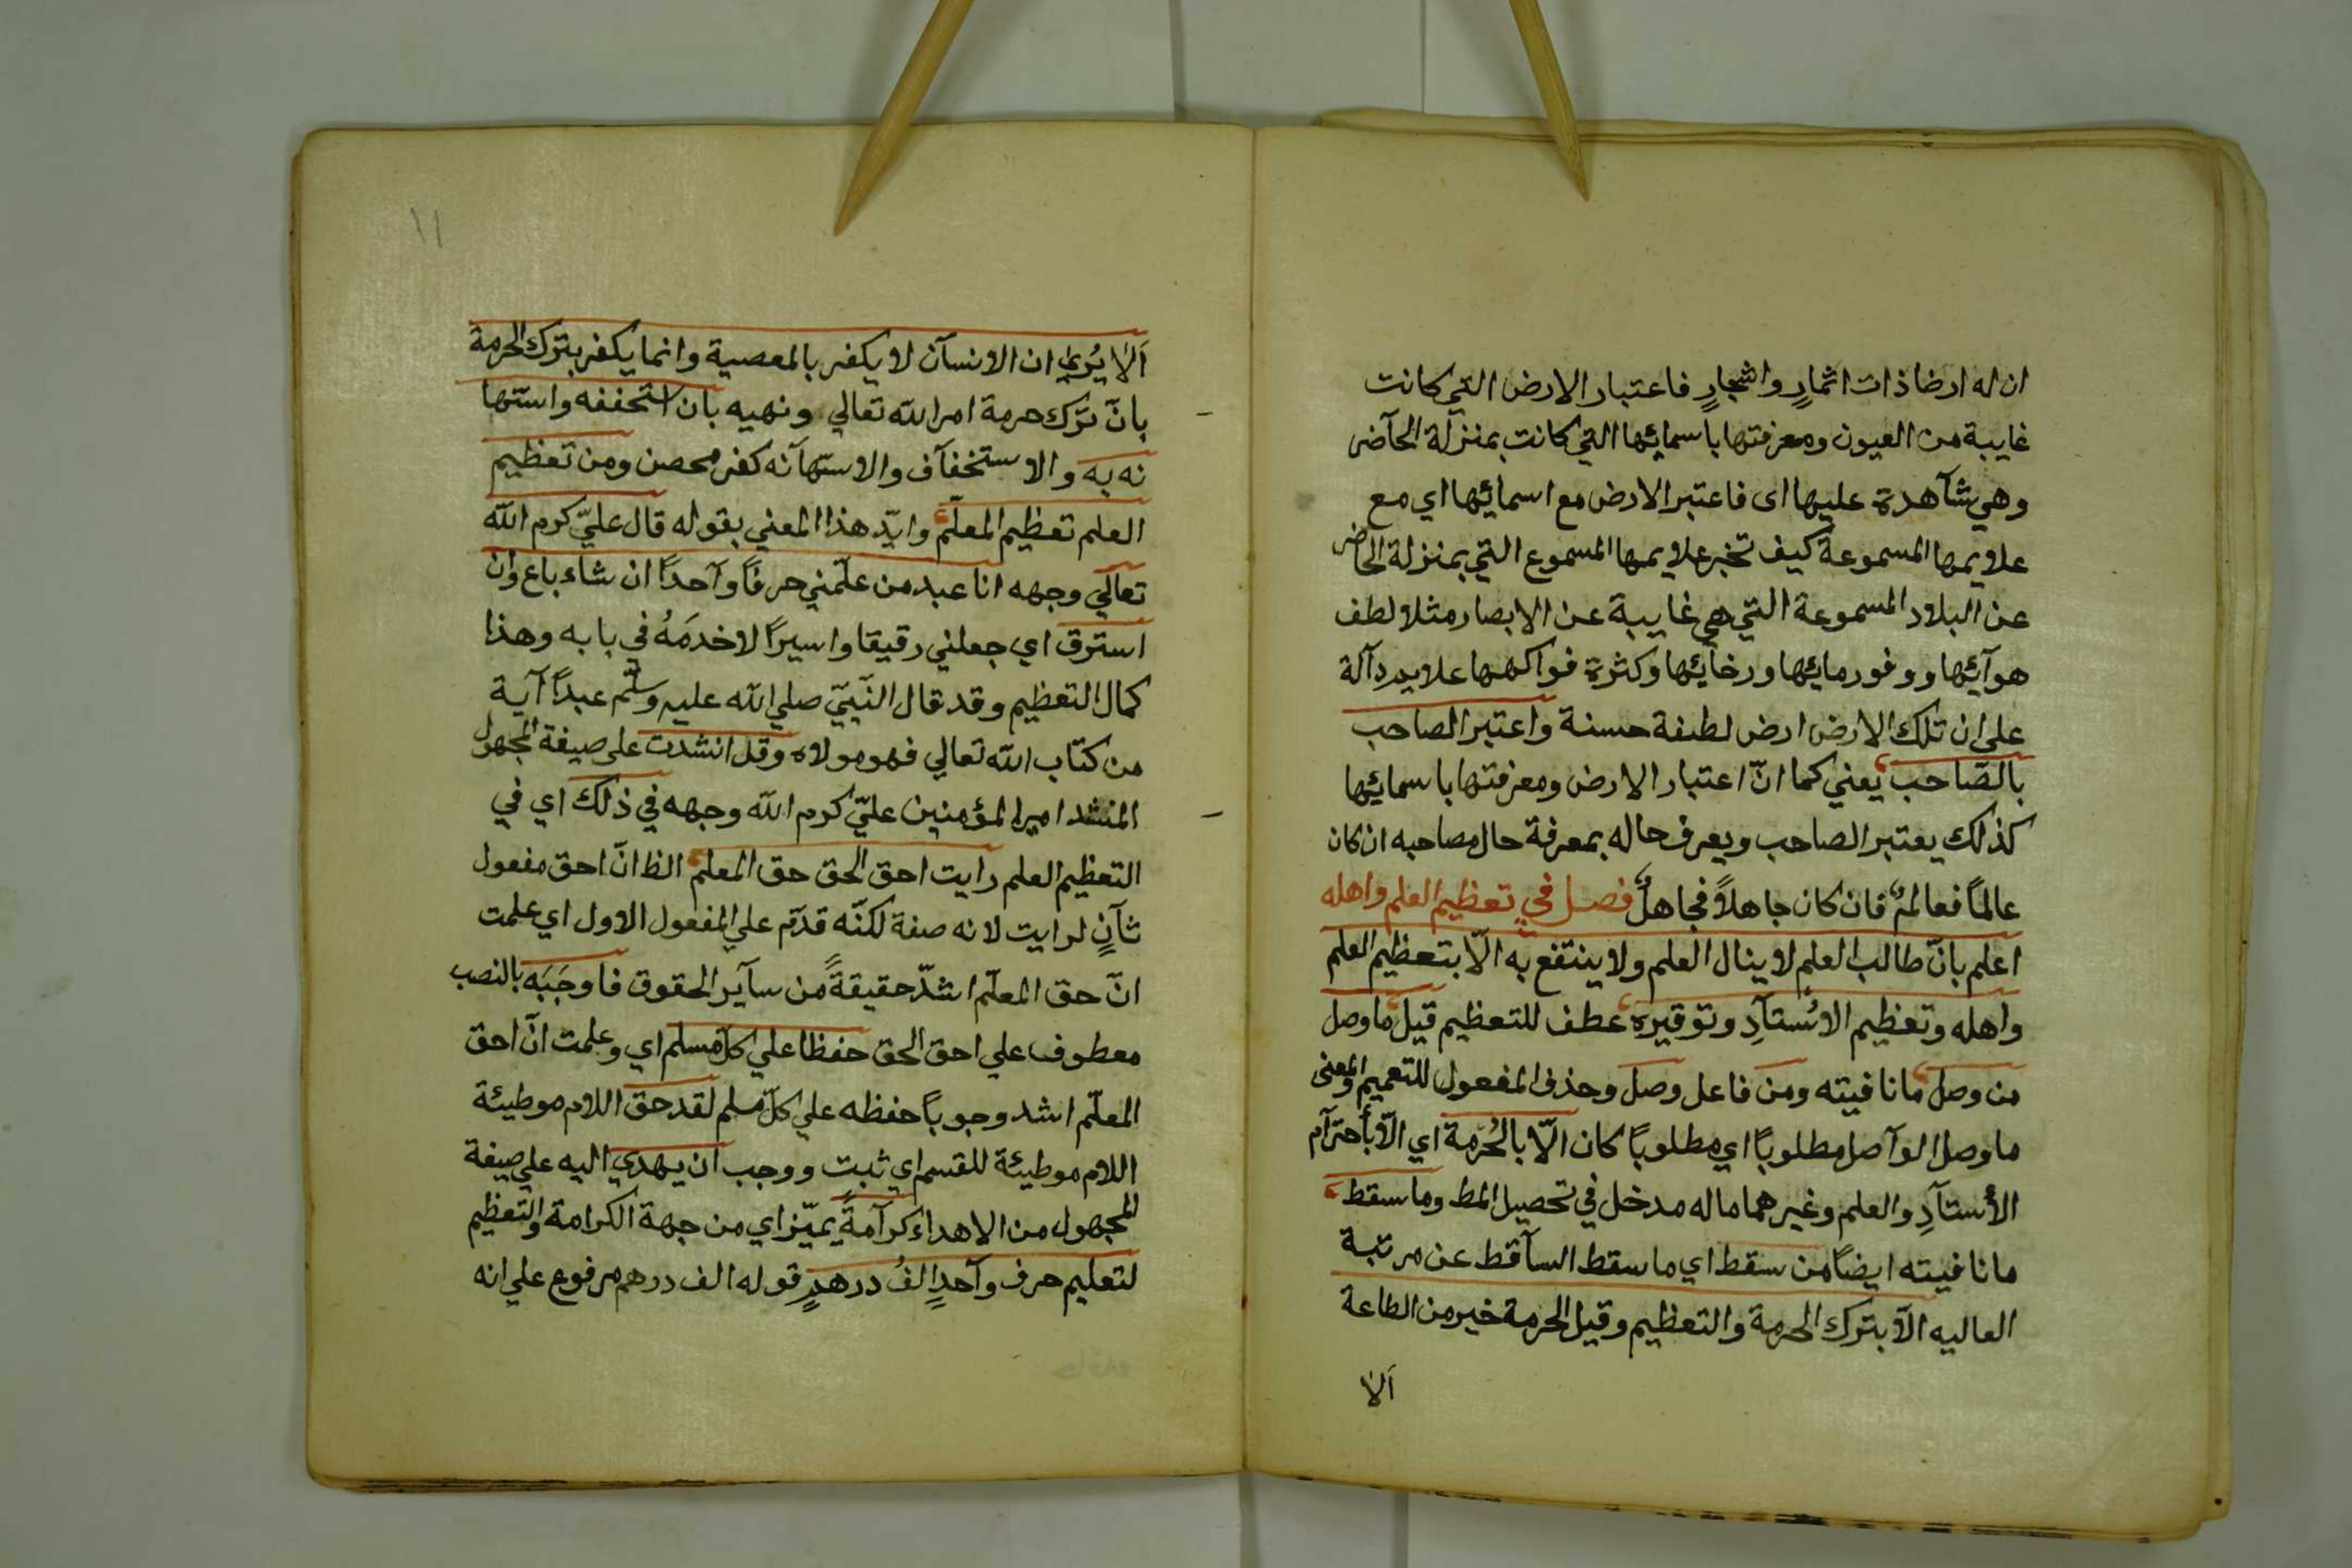 ان له ارضا ذات اثمارٍ واشجارٍ فاعتبار الارض التي كانت
غايبة من العيون ومعرفتها باسمائها التي كانت بمنزلة الحآضر
وهي شآهدة عليها اى فاعتبر الارض مع اسمائها اي مع
علايمها المسموعة كيف تخبر علايمها المسموع التي بمنزلة الحاضر
عن البلاد المسموعة التي هي غايبة عن الابصار مثلا لطف
هوآئها ووفور مائها ورخآئها وكثرة فواكهها علا يدرآلة
على ان تلك الارض ارض لطيفة حسنة واعتبر الصاحب
بالصّاحب يعني كما انّ اعتبار الارض ومعرفتها باسمائها
كذلك يعتبر الصاحب ويعرف حاله بمعرفة حال مصاحبه ان كان
عالماً فعالمٌ فان كان جاهلاً فجاهلٌ فصل في تعظيم العلم واهله
اعلم بانّ طالب العلم لا ينال العلم ولا ينتفع به الّا بتعظيم العلم
واهله وتعظيم الاُستآدِ وتوقيره عطف للتعظيم قيل ما وصل
من وصل ما نافيته ومن فاعل وصل وحذف المفعول للتعميم والمعنى
ما وصل الوآصل مطلوباً اي مطلوباً كان الّا بالحُرمة اي الّا بأحترآم
الأستآدِ والعلم وغيرهما ما له مدخل في تحصيل المط وما سقط
ما نافيته ايضاً من سقط اي ما سقط السآقط عن مرتبة
العاليه الّا بترك الحرمة والتعظيم وقيل الحرمة خير من الطاعة
اَلا
١١
اَلا يُرى ان الانسآن لا يكفر بالمعصية وانما يكفر بترك الحرمة
بانّ ترك حرمة امر الله تعالي ونهيه بان استحففه واستها
نه به والاستخفآف والاستهآنه كفر محصن ومن تعظيم
العلم تعظيم المعلّم وايّد هذا المعني بقوله قال عليّ كرم الله
تعآلي وجهه انا عبد من علّمني حرفاً وآحداً ان شاء باع وان
استرق اي جعلني رقيقا واسيراً لاخدمَهُ في بابه وهذا
كمال التعظيم وقد قال النّبيّ صلي الله عليه وسلّم عبداً آية
من كتاب الله تعالي فهو مولاه وقد انشدت على صيغة المجهول
المنشد امير المؤمنين عليّ كرم الله وجهه في ذلك اي في
التعظيم العلم رايت احق الحق حق المعلم الظ انّ احق مفعول
ثآنٍ لرايت لانه صفة لكنّه قدّم علي المفعول الاول اي علمت
انّ حق المعلّم اشدّ حقيقةً من سآير الحقوق فاوجَبَه بالنصب
معطوف علي احق الحق حفظا علي كلّ مسلم اي وعلمت انّ احق
المعلّم اشد وجوباً حفظه علي كلّ مسلم لقد حق اللام موطيئة
اللام موطيئة للقسم اي ثبت ووجب ان يهدي اليه علي صيغة
المجهول من الاهداء كرآمةً يميّز اي من جهة الكرامة والتعظيم
لتعليم حرف وآحدٍ الفُ درهدٍ قوله الف درهم مرفوع علي انه